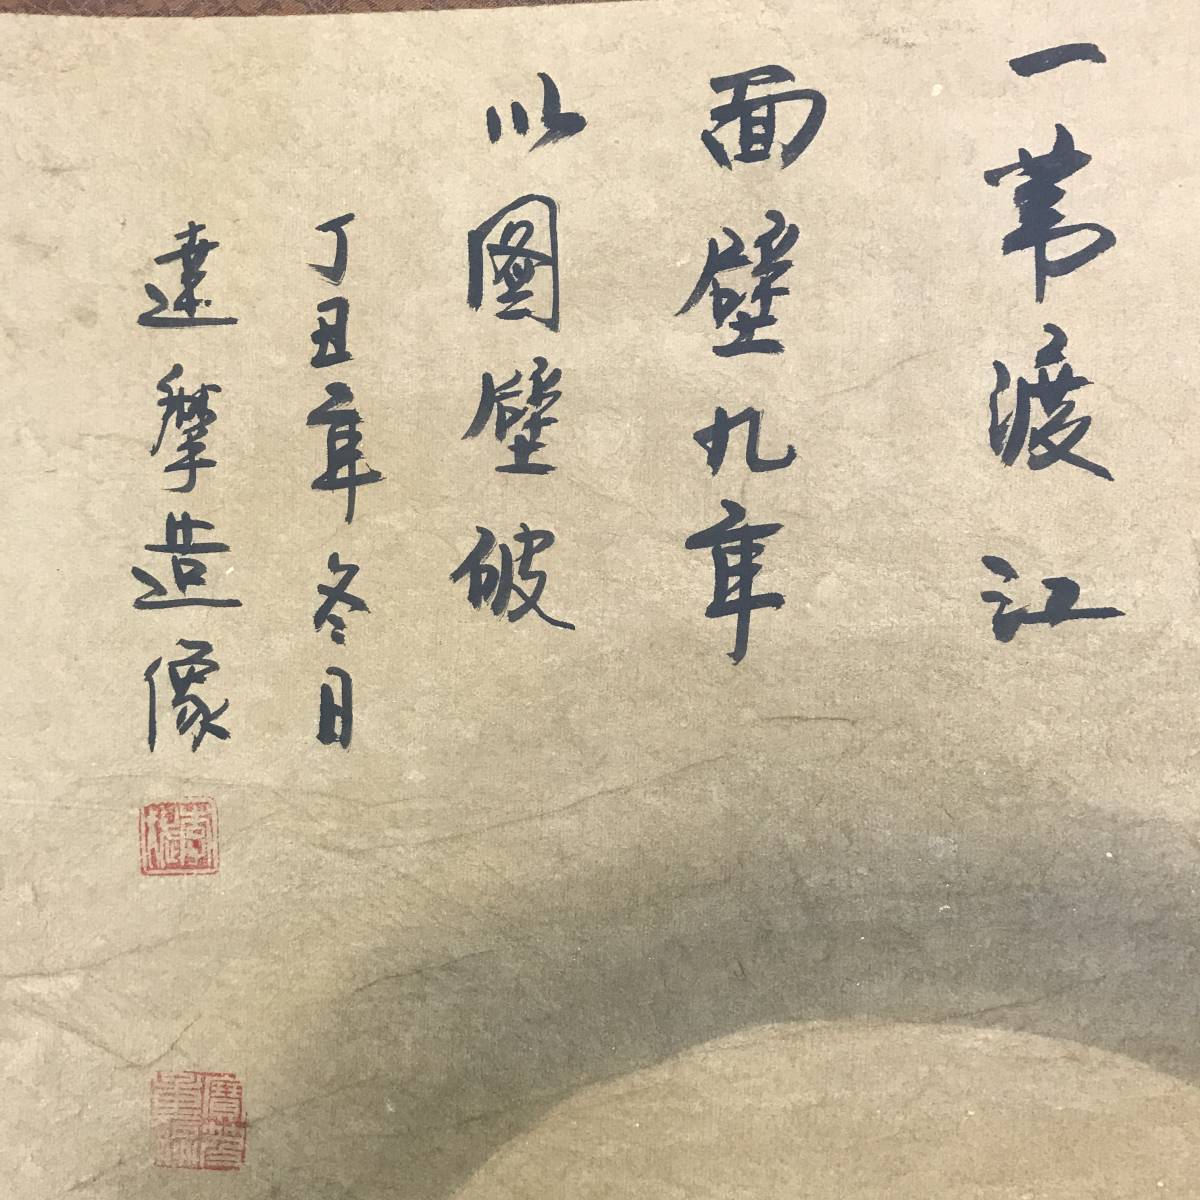 一苇渡江
面壁九年
以图壁破
丁丑年冬日
達摩造像